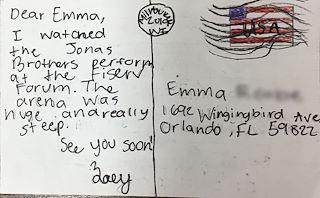 Dear Emma,
I watched
the Jonas
Brothers perform
at the Fiserv
Forum. The
arena was
huge and really
steep.
See you soon!
Zoey
2019
WI
USA
Emma
1692 Wingingbird Ave
Orlando, FL 59822